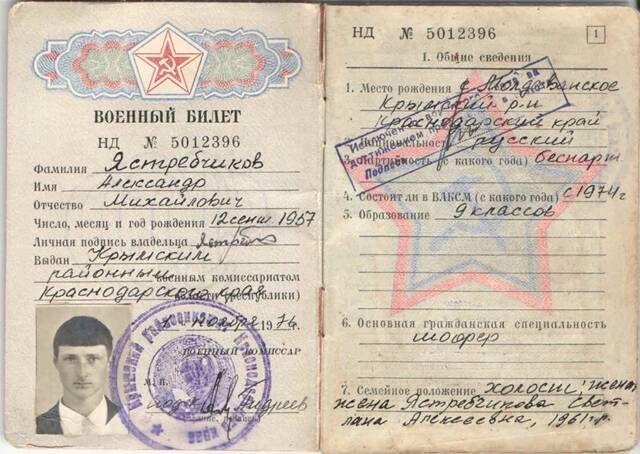 ВОЕННЫЙ БИЛЕТ
НД № 5012396
Фамилия Ястребчиков
Имя Александр
Отчество Михайлович
Число, месяц и год рождения 12 сент 1957
Личная подпись владельца
Выдан Крымским
районным военным комиссариатом
Краснодарского края области (республики)
ноября 1974
ВОЕННЫЙ КОМИССАР
М. П.
НД № 5012396
1
I. Общие сведения
1. Место рождения с. Молдаванское
Крымский р-н
Краснодарский край
2. Национальность русский
3. Партийность (с какого года) беспарт
4. Состоит ли в ВЛКСМ (с какого года) с 1974 г
5. Образование 9 классов
6. Основная гражданская специальность
шофер
7. Семейное положение холост, женат
жена Ястребчикова Свет-
лана Алексеевна, 1961 г.р.
Исключен с воинского учета за
достижением
Подпись